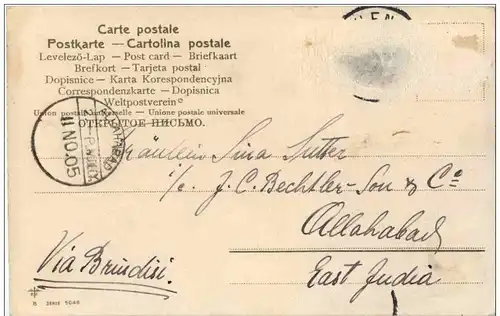 Carte postale
Postkarte — Cartolina postale
Levelező-Lap — Post card — Briefkaart
Brefkort — Tarjeta postal
Dopisnice — Karta Korespondencyjna
Correspondenzkarte — Dopisnica
Weltpostverein
Union postale universelle — Unione postale universale
ОТКРЫТОЕ ПИСЬМО.
ALLAHABAD
11 NO. 05
Fräulein Lina Sutter
c/o J. C. Bechtler-Son & Co
Allahabad
East India
Via Brindisi.